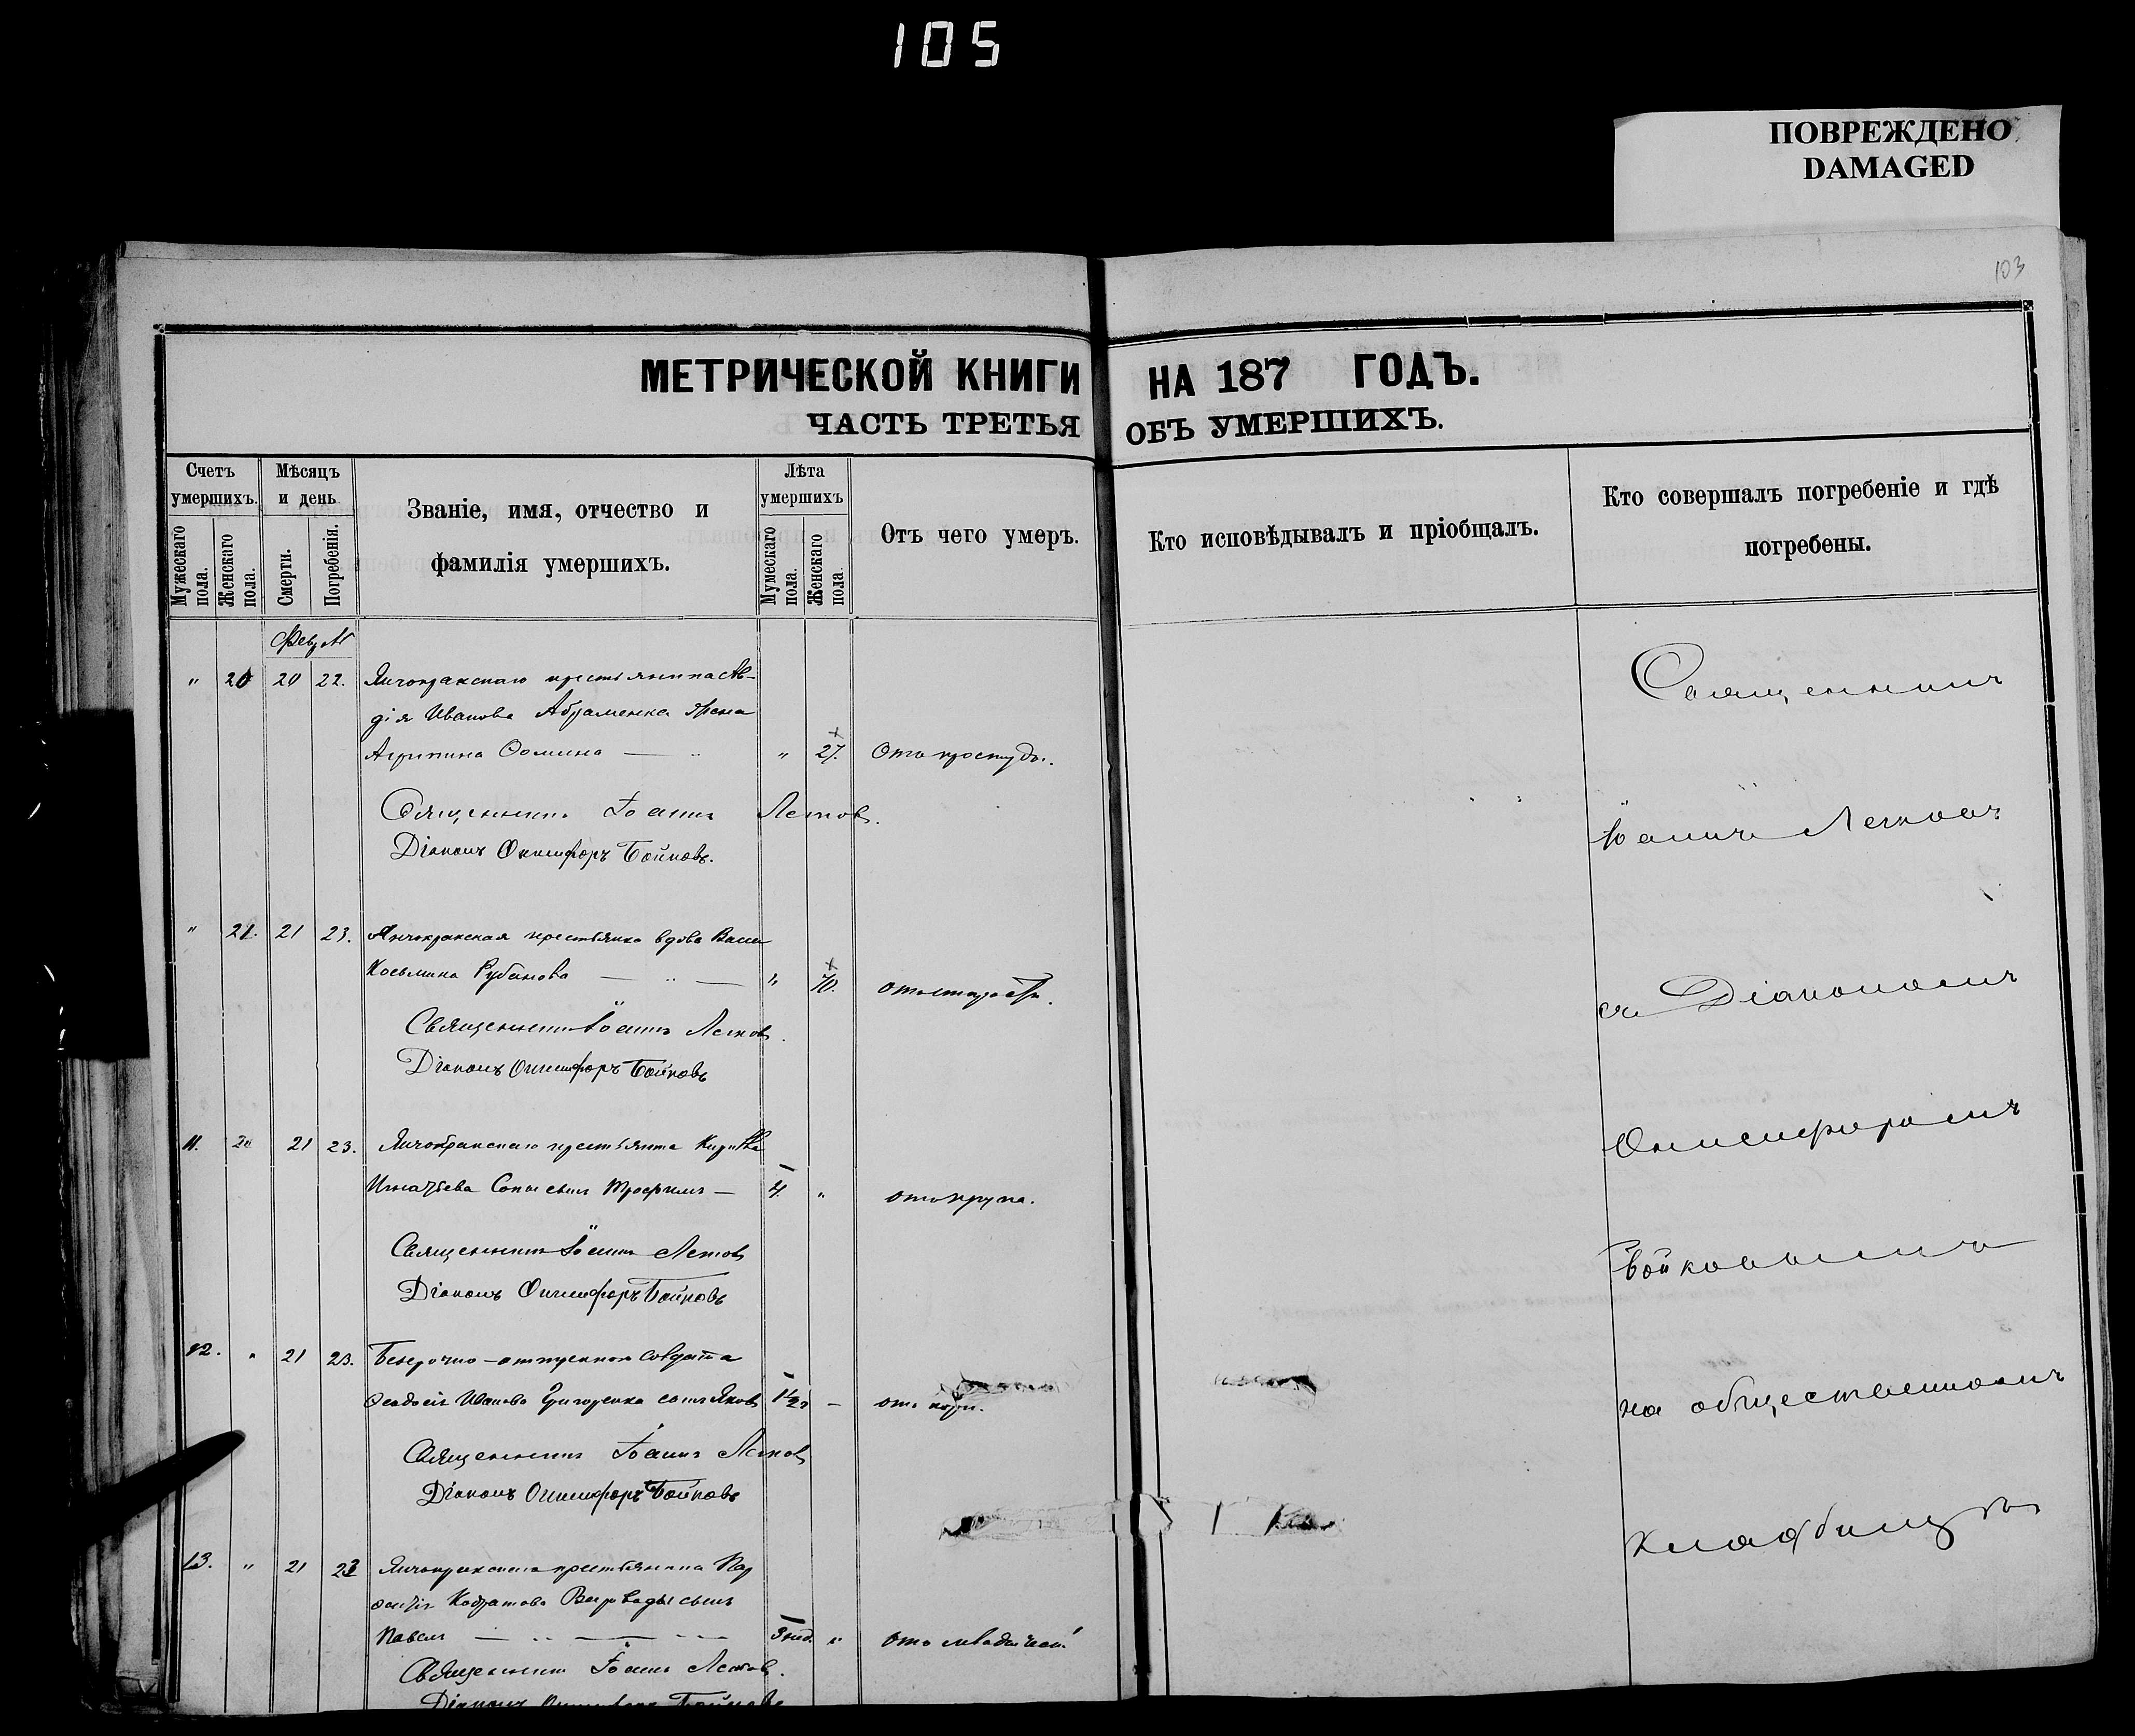 105
ПОВРЕЖДЕНО
DAMAGED
103
МЕТРИЧЕСКОЙ КНИГИ НА 187 ГОДЪ.
ЧАСТЬ ТРЕТЬЯ ОБЪ УМЕРШИХЪ.
Счетъ умершихъ.
Мужескаго пола.
Женскаго пола.
Мѣсяцъ и день
Смерти.
Погребенія.
Званіе, имя, отчество и
фамилія умершихъ.
Лѣта умершихъ
Мужескаго пола.
Женскаго пола.
Отъ чего умеръ.
Кто исповѣдывалъ и пріобщалъ.
Кто совершалъ погребеніе и гдѣ
погребены.
" 20 20 22. крестьянина Ав-
дія Иванова Абраменка жена
Агрипина Фомина — " " 27. Отъ простуды.
Священникъ Іоаннъ
Діаконъ Онисифоръ Бойковъ.
" 21. 21 23. крестьянка вдова
Косьмина Рубанова — " — " 70. отъ старости.
Священникъ Іоаннъ
Діаконъ Онисифоръ Бойковъ
11. 21 23. крестьянина
Игнатьева сынъ Трофимъ — 4. " отъ крупа.
Священникъ Іоаннъ
Діаконъ Онисифоръ Бойковъ
12. " 21 23. Безсрочно-отпускного солдата
Феодосія Иванова Григоренка сынъ Яковъ 1½ — отъ кори.
Священникъ Іоаннъ
Діаконъ Онисифоръ Бойковъ
13. " 21 23 крестьянина
сынъ
Павелъ — " — 3 нед. " отъ младенч.
Священникъ Іоаннъ
Діаконъ Онисифоръ Бойковъ
Священникъ
Іоаннъ
съ Діакономъ
Онисифоромъ
Бойковымъ
на общественномъ
кладбищѣ